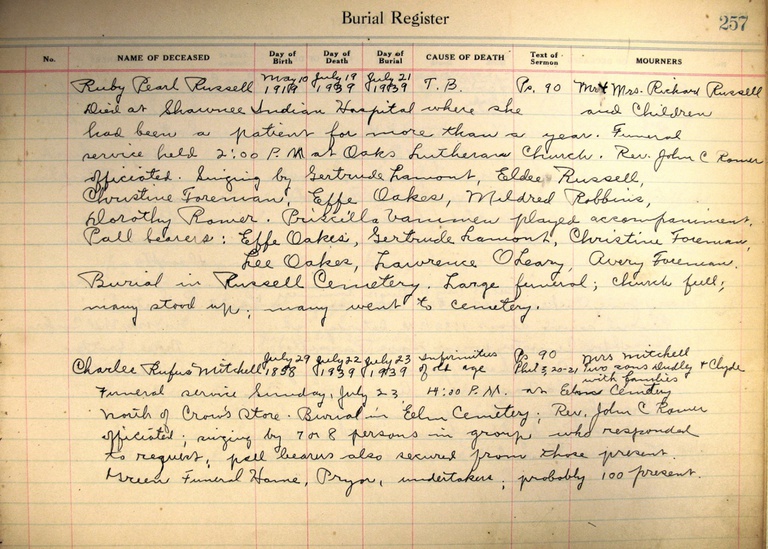 Burial Register
257
No. NAME OF DECEASED Day of Birth Day of Death Day of Burial CAUSE OF DEATH Text of Sermon MOURNERS
May 10 July 19 July 21
Ruby Pearl Russell 1919 1939 1939 T.B. Ps. 90 Mr & Mrs. Richard Russell
Died at Shawnee Indian Hospital where she and Children
had been a patient for more than a year. Funeral
service held 2:00 P.M at Oaks Lutheran Church. Rev. John C Romer
officiated. Singing by Gertrude Lamont, Eldee Russell,
Christine Foreman, Effe Oakes, Mildred Robbins,
Dorothy Romer. Priscilla Vammen played accompaniment.
Pall bearers: Effe Oakes, Gertrude Lamont, Christine Foreman,
Lee Oakes, Lawrence O'Leary, Avery Foreman.
Burial in Russell Cemetery. Large funeral; church full;
many stood up; many went to cemetery.
July 29 July 22 July 23 Infirmities Ps 90 Mrs Mitchell
Charlee Rufus Mitchell 1858 1939 1939 of old age Phil 3, 20-21 Two sons Dudley & Clyde
with families
Funeral service Sunday, July 23 4:00 P.M. at Elm Cemetery
North of Crow's Store. Burial in Elm Cemetery; Rev. John C Romer
officiated; singing by 7 or 8 persons in group who responded
to request; pall bearers also secured from those present.
Green Funeral Home, Pryor, undertakers; probably 100 present.